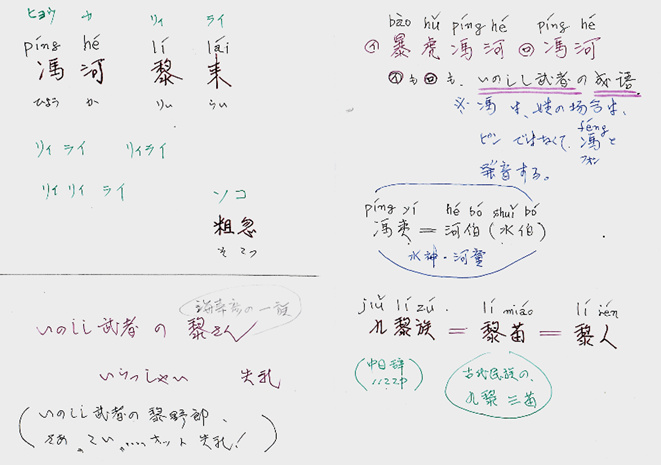 ヒョウ カ リィ ライ
píng hé lí lái
馮 河 黎 来
ひょう か りい らい
リィ ライ リィライ
リィ リィ ライ
ソコ
粗忽
そこつ
海南島の一族
いのしし武者の黎さん
いらっしゃい 失礼
いのしし武者の黎野郎、
さあ、てい、、、、、ホント 失礼!
bào hǔ píng hé píng hé
㋑ 暴虎馮河 ㋺ 馮河
㋑も㋺も、いのしし武者の成语.
※ 馮 は、姓の場合は、
ピン ではなくて、馮と
féng
フォン
発音する。
píng yí hé bó shuǐ bó
馮夷=河伯(水伯)
水神・河童
jiǔ lí zú. lí miáo lí rén
九黎族=黎苗=黎人
中日辞
古代民族の、
九黎 三苗